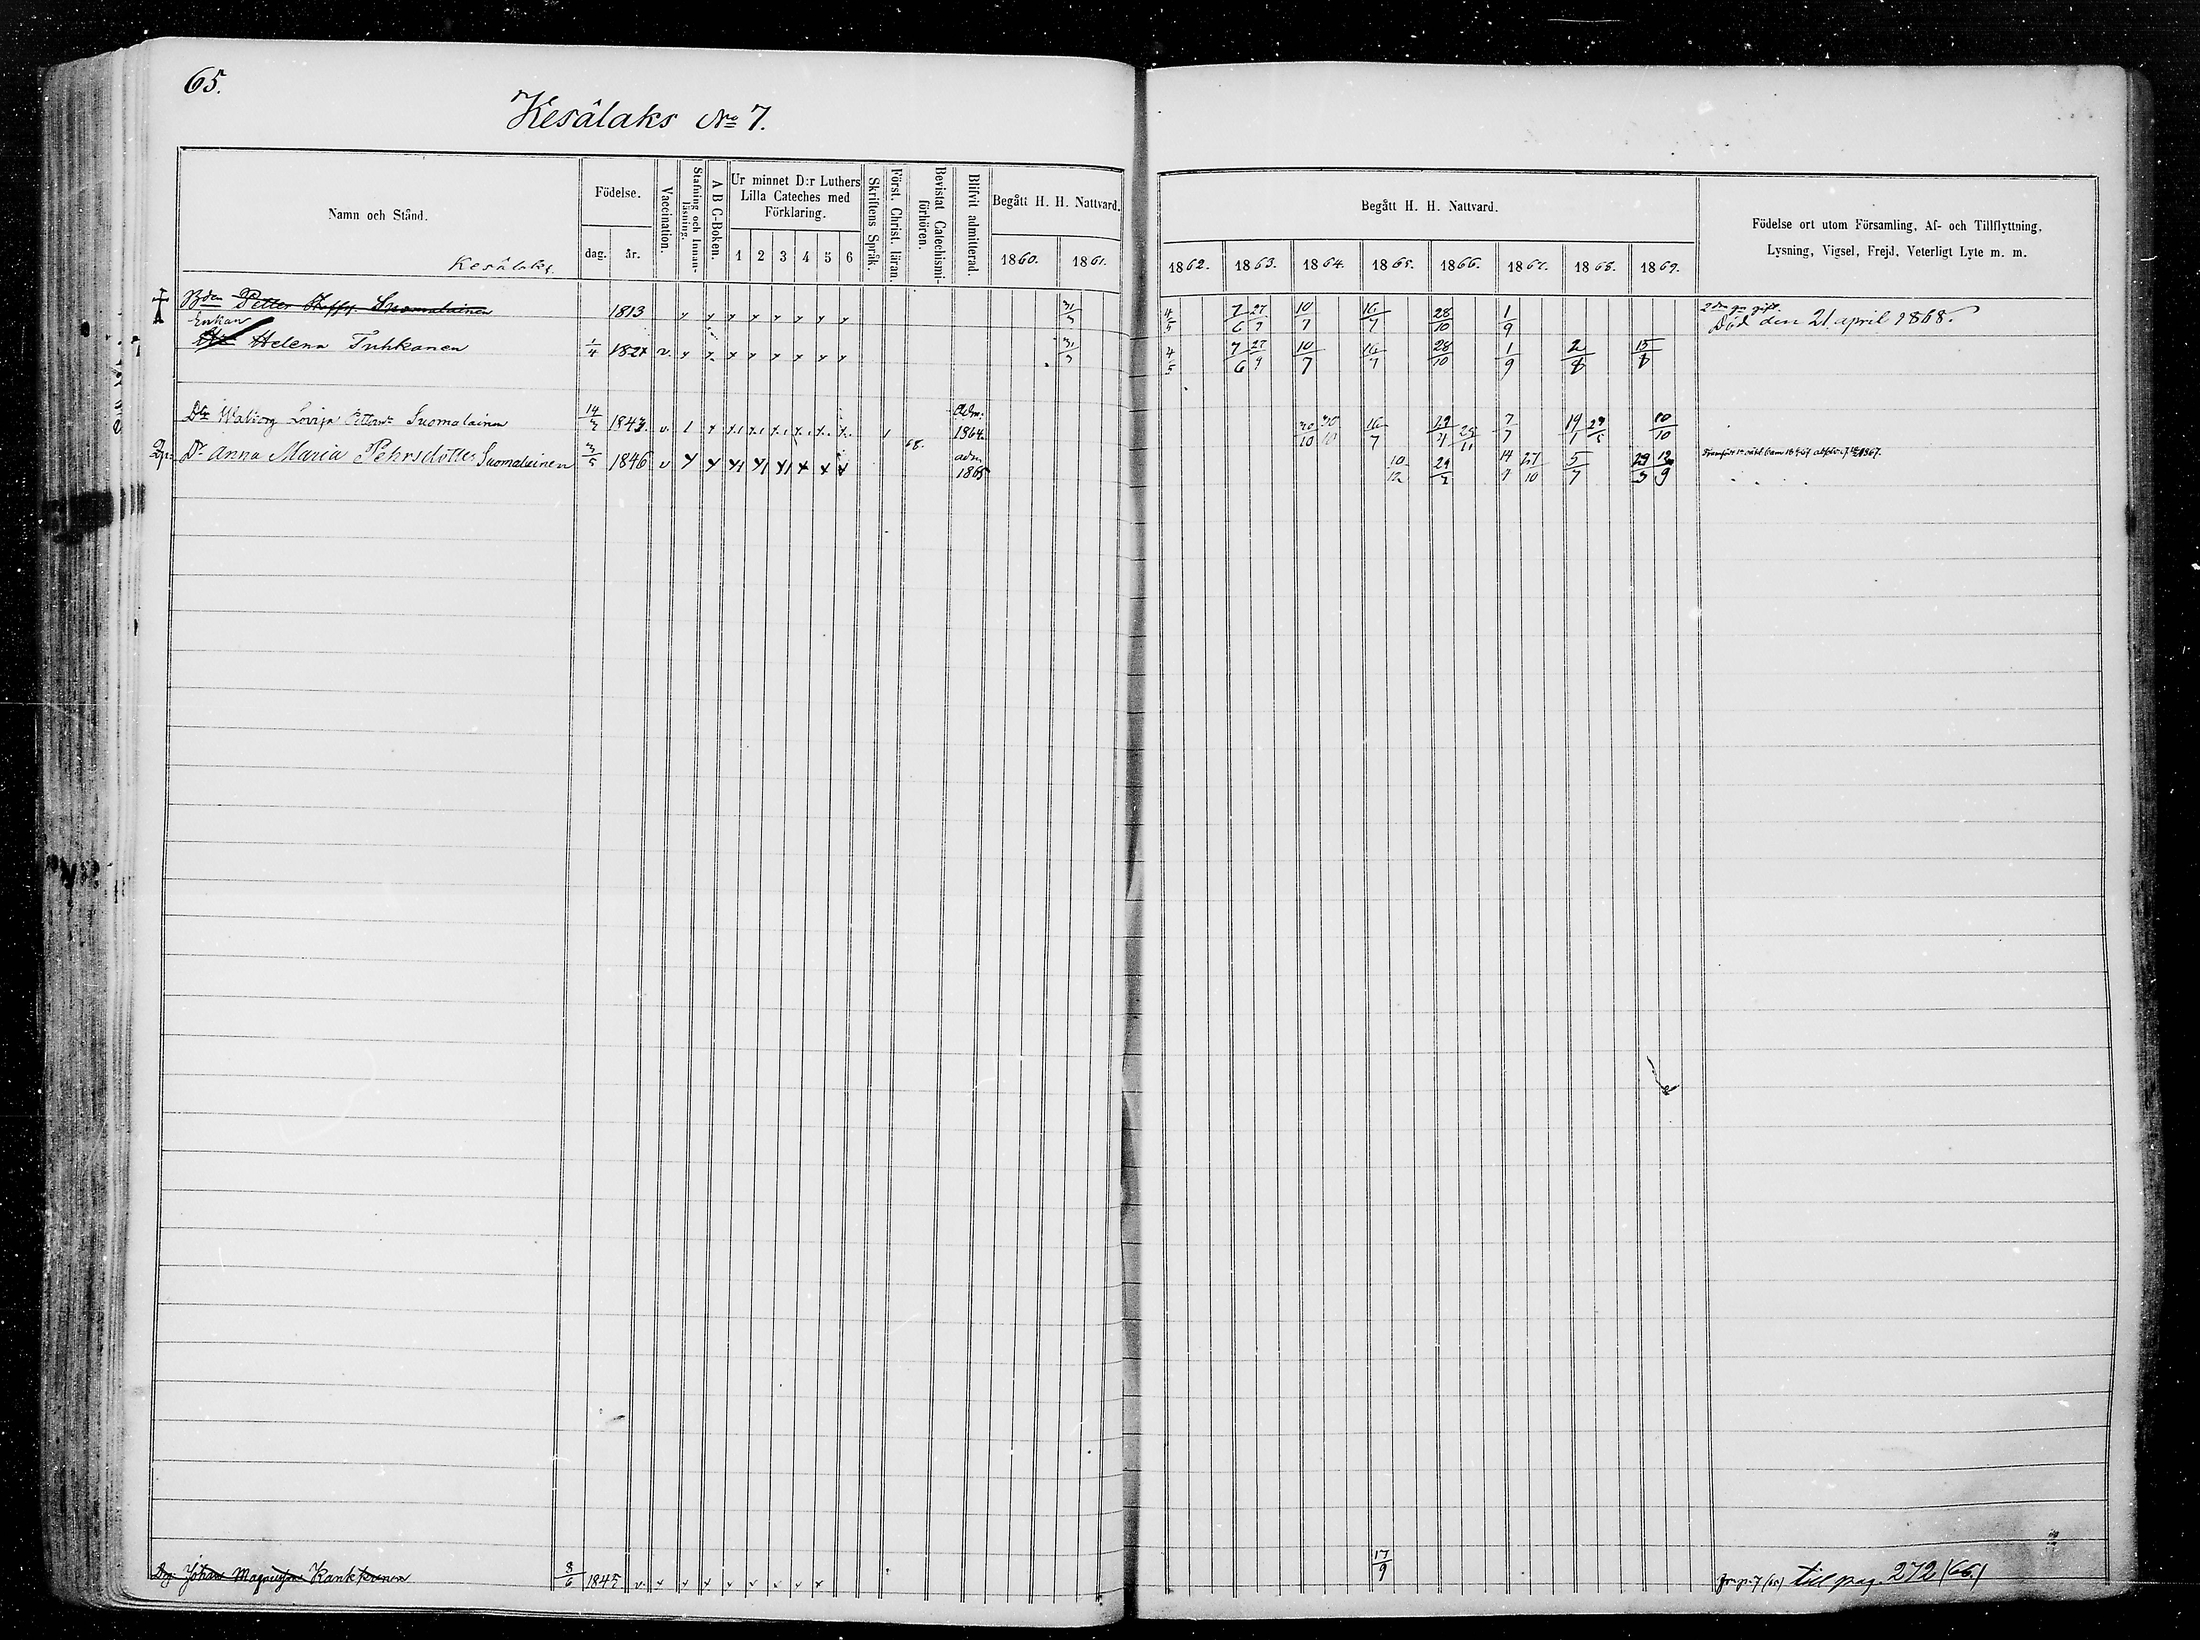 65.
Kesälaks No 7.
Namn och Stånd.
Födelse.
dag. år.
Vaccination.
Stafning och Innan-läsning.
A B C-Boken.
Ur minnet D:r Luthers Lilla Cateches med Förklaring.
1 2 3 4 5 6
Skriftens Språk.
Först. Christ. läran.
Bevistat Catechismi-förhören.
Blifvit admitterad.
Begått H. H. Nattvard.
1860. 1861.
Begått H. H. Nattvard.
1862. 1863. 1864. 1865. 1866. 1867. 1868. 1869.
Födelse ort utom Församling, Af- och Tillflyttning,
Lysning, Vigsel, Frejd, Veterligt Lyte m. m.
Kesälaks.
Bden Petter Staffs. Suomalainen 1813 31/3 4/5 7/6 27/9 10/7 16/7 28/10 1/9 2dra g. gift. Död den 21 april 1868.
Enkan
Helena Tuhkanen 1/4 1827 v. 31/3 4/5 7/6 27/9 10/7 16/7 28/10 1/9 2/8 15/8
Dtr Walborg Lovisa Petters Suomalainen 14/2 1843. v. adm. 1864. 30/10 16/7 29/11 7/7 19/1 29/5 10/10
Dr Anna Maria Pehrsdotter Suomalainen 3/5 1846 v 68. adm 1865 10/12 14/7 27/10 5/7 29/3 12/9
Drg. Johan Magnusson Kankkunen 8/6 1845 v. 17/9 fr. p. 7 (65) till pag. 272 (66)